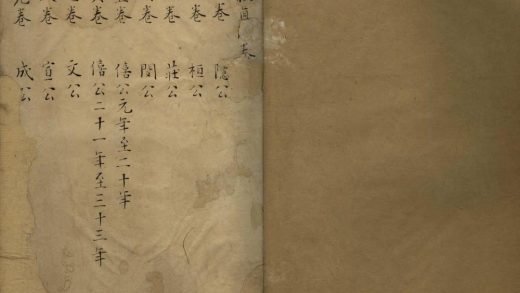 卷 隱公
卷 桓公
卷 莊公
卷 閔公
卷 僖公元年至二十年
卷 僖公二十一年至三十三年
卷 文公
卷 宣公
卷 成公